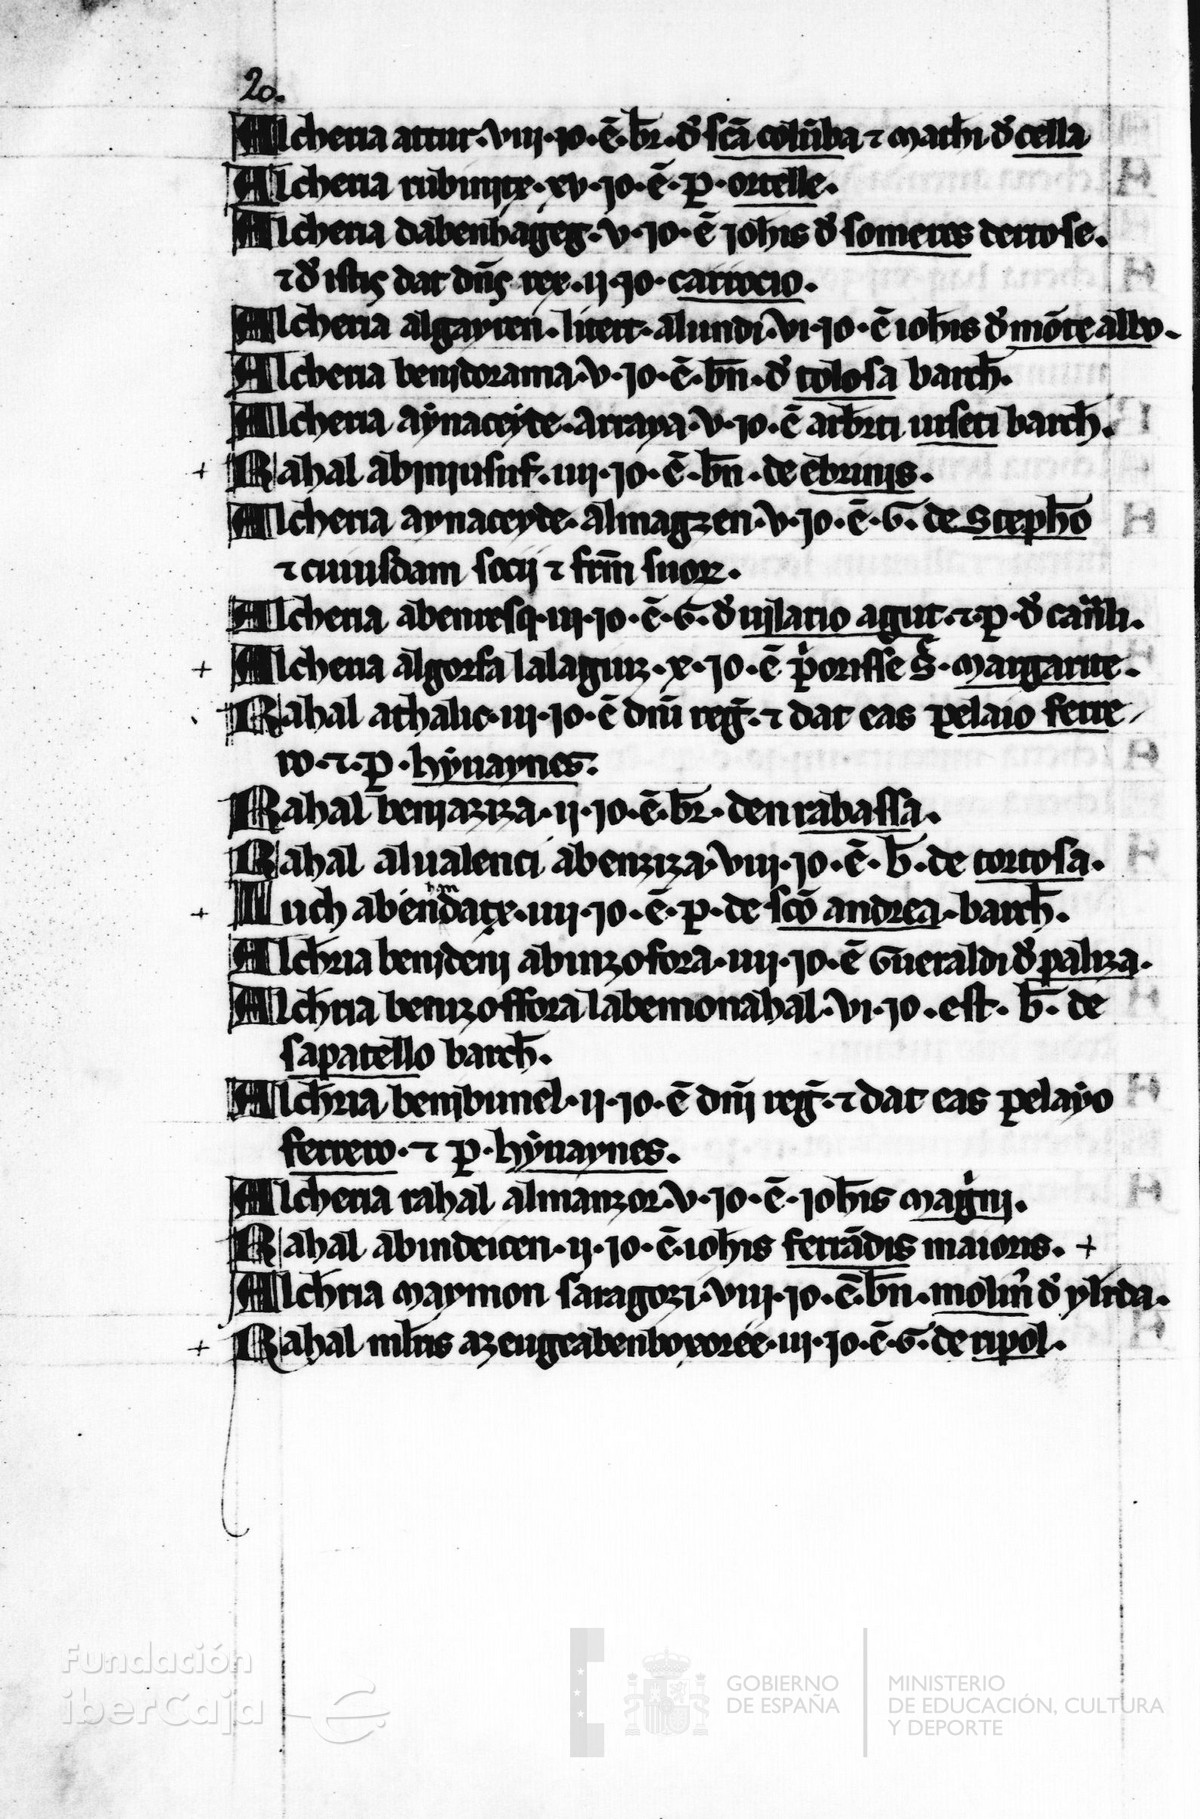 20.
Alcheria attur. viii. io. ē. br̄. đ sc̄a colūba ⁊ mathi đ cella
Alcheria rubinitx. xv. io. ē. p̱. ortelle.
Alcheria dabenhageg. v. io. ē ioh̄is đ someres dertose.
⁊ đ istis dat dn̄s rex. ii. io. carrocio.
Alcheria algayren. liteit. alundi. vi. io. ē ioh̄is đ mōte albo.
Alcheria benidorama. v. io. ē. bn̄. đ tolosa barch̄.
Alcheria aẏnaceyte. arraya. v. io. ē arb̄rti urseti barch̄.
+ Rahal abiniusuf. iiii. io. ē. bn̄. de ebrinis.
Alcheria aynaceyde. almagzen. v. io. ē. G. de Steph̄o
⁊ cuiusdam socij ⁊ fr̄m suoꝝ.
Alcheria abencresq. iii. io. ē. G. đ uilario agut. ⁊. p̱. đ
+ Alcheria algorfa lalaguiz. x. io. ē p̓orisse S̄. margarite.
Rahal athalic. iii. io. ē dn̄i reḡ. ⁊ dat eas pelaio ferre
ro. ⁊. p̱. hẏuaynes.
Rahal beniaziza. ii. io. ē. br̄. den rabassa.
Rahal alualenci abenziza. viii. io. ē. b̄. de tortosa.
+ Luch abendatx. iiii. io. ē. p̱. de sc̄o andrea. barch̄.
Alch̄ria benideni abinzofora. iiii. io. ē Gueraldi đ paliza.
Alch̄ria beinzoffora labemonahal. vi. io. est. b̄. de
sapatello barch̄.
Alch̄ria benibunel. ii. io. ē dn̄i reḡ. ⁊ dat eas pelaẏo
ferrero. ⁊ p̱. hẏuaynes.
Alcheria rahal almanzor. v. io. ē. ioh̄is mag̓ni.
Rahal abindeicen. ii. io. ē. ioh̄is ferrādis maioris. +
Alch̄ria maymon saragozi. viii. io. ē. bn̄. molin̓ đ ylerda.
+ Rahal azeugtabenboxoree. iii. io. ē. G. de ripol.
Fundación
iberCaja
GOBIERNO
DE ESPAÑA
MINISTERIO
DE EDUCACIÓN, CULTURA
Y DEPORTE